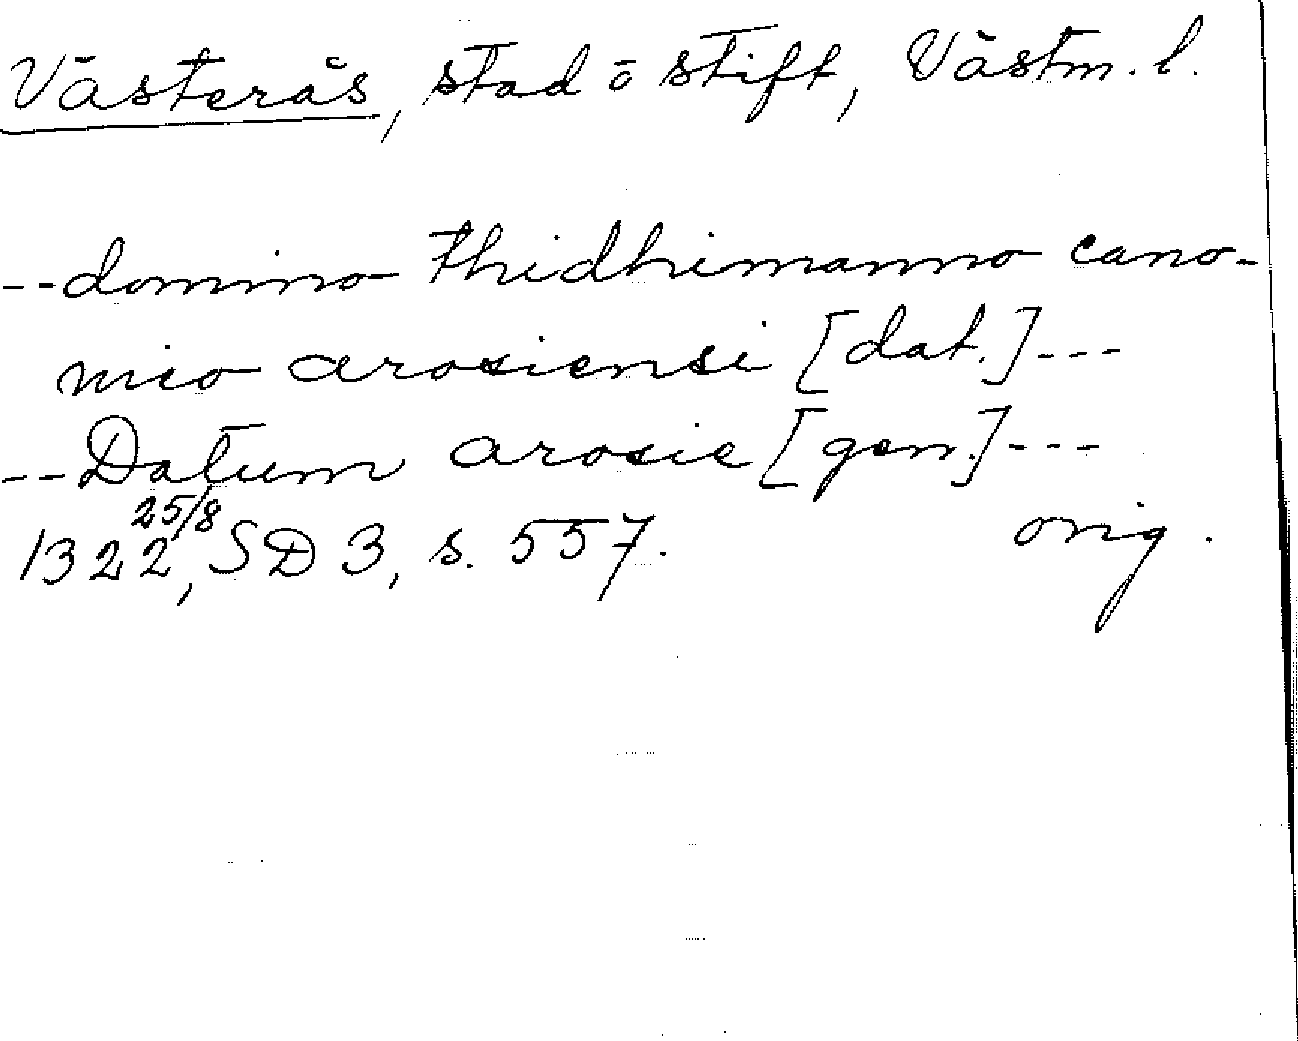 Västerås, stad o stift, Västm. l.
--domino thidhimanno cano-
nico arosiensi [dat.]---
--Datum arosie [gen.]---
1322 25/8, SD 3, s. 557. orig.